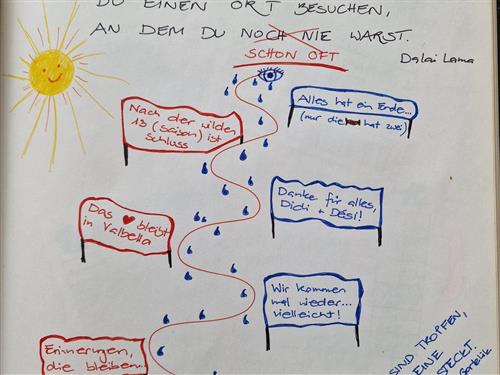 DU EINEN ORT BESUCHEN,
AN DEM DU NOCH NIE WARST.
SCHON OFT
Dalai Lama
Nach der wilden
13 (Saison) ist
schluss
Alles hat ein Ende...
(nur die hat zwei)
Danke für alles,
Didi + Dési!
Das ❤ bleibt
in Valbella
Wir kommen
mal wieder...
vielleicht!
Erinnerungen,
die bleiben...
SIND TROPFEN,
EINE
STECKT